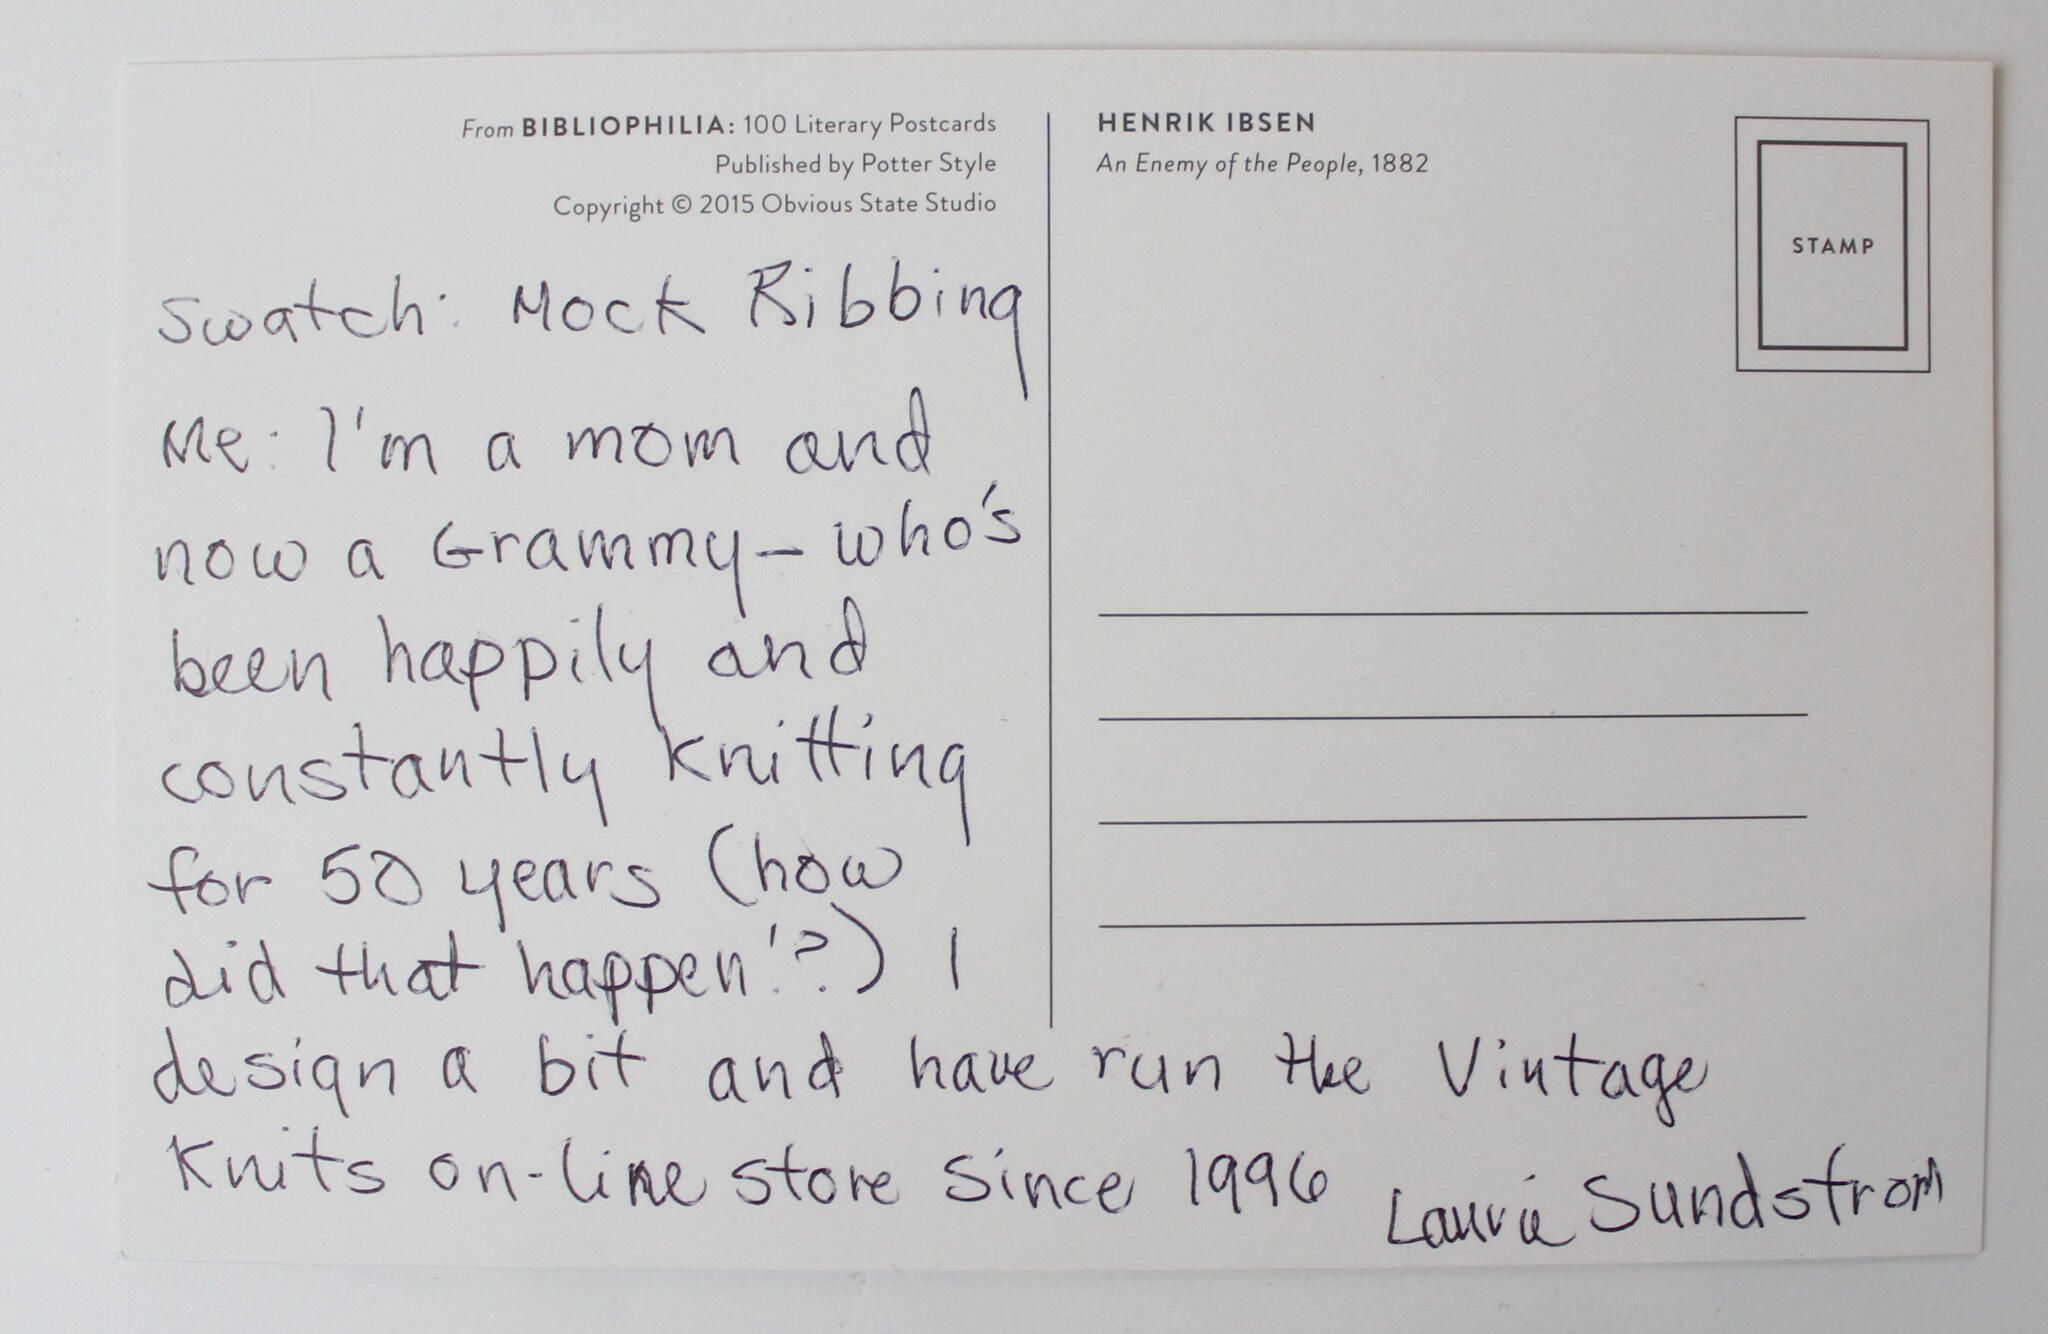 From BIBLIOPHILIA: 100 Literary Postcards
Published by Potter Style
Copyright © 2015 Obvious State Studio
HENRIK IBSEN
An Enemy of the People, 1882
STAMP
Swatch: Mock Ribbing
Me: I'm a mom and
now a Grammy – who's
been happily and
constantly knitting
for 50 years (how
did that happen!?) I
design a bit and have run the Vintage
Knits on-line store since 1996
Laurie Sundstrom